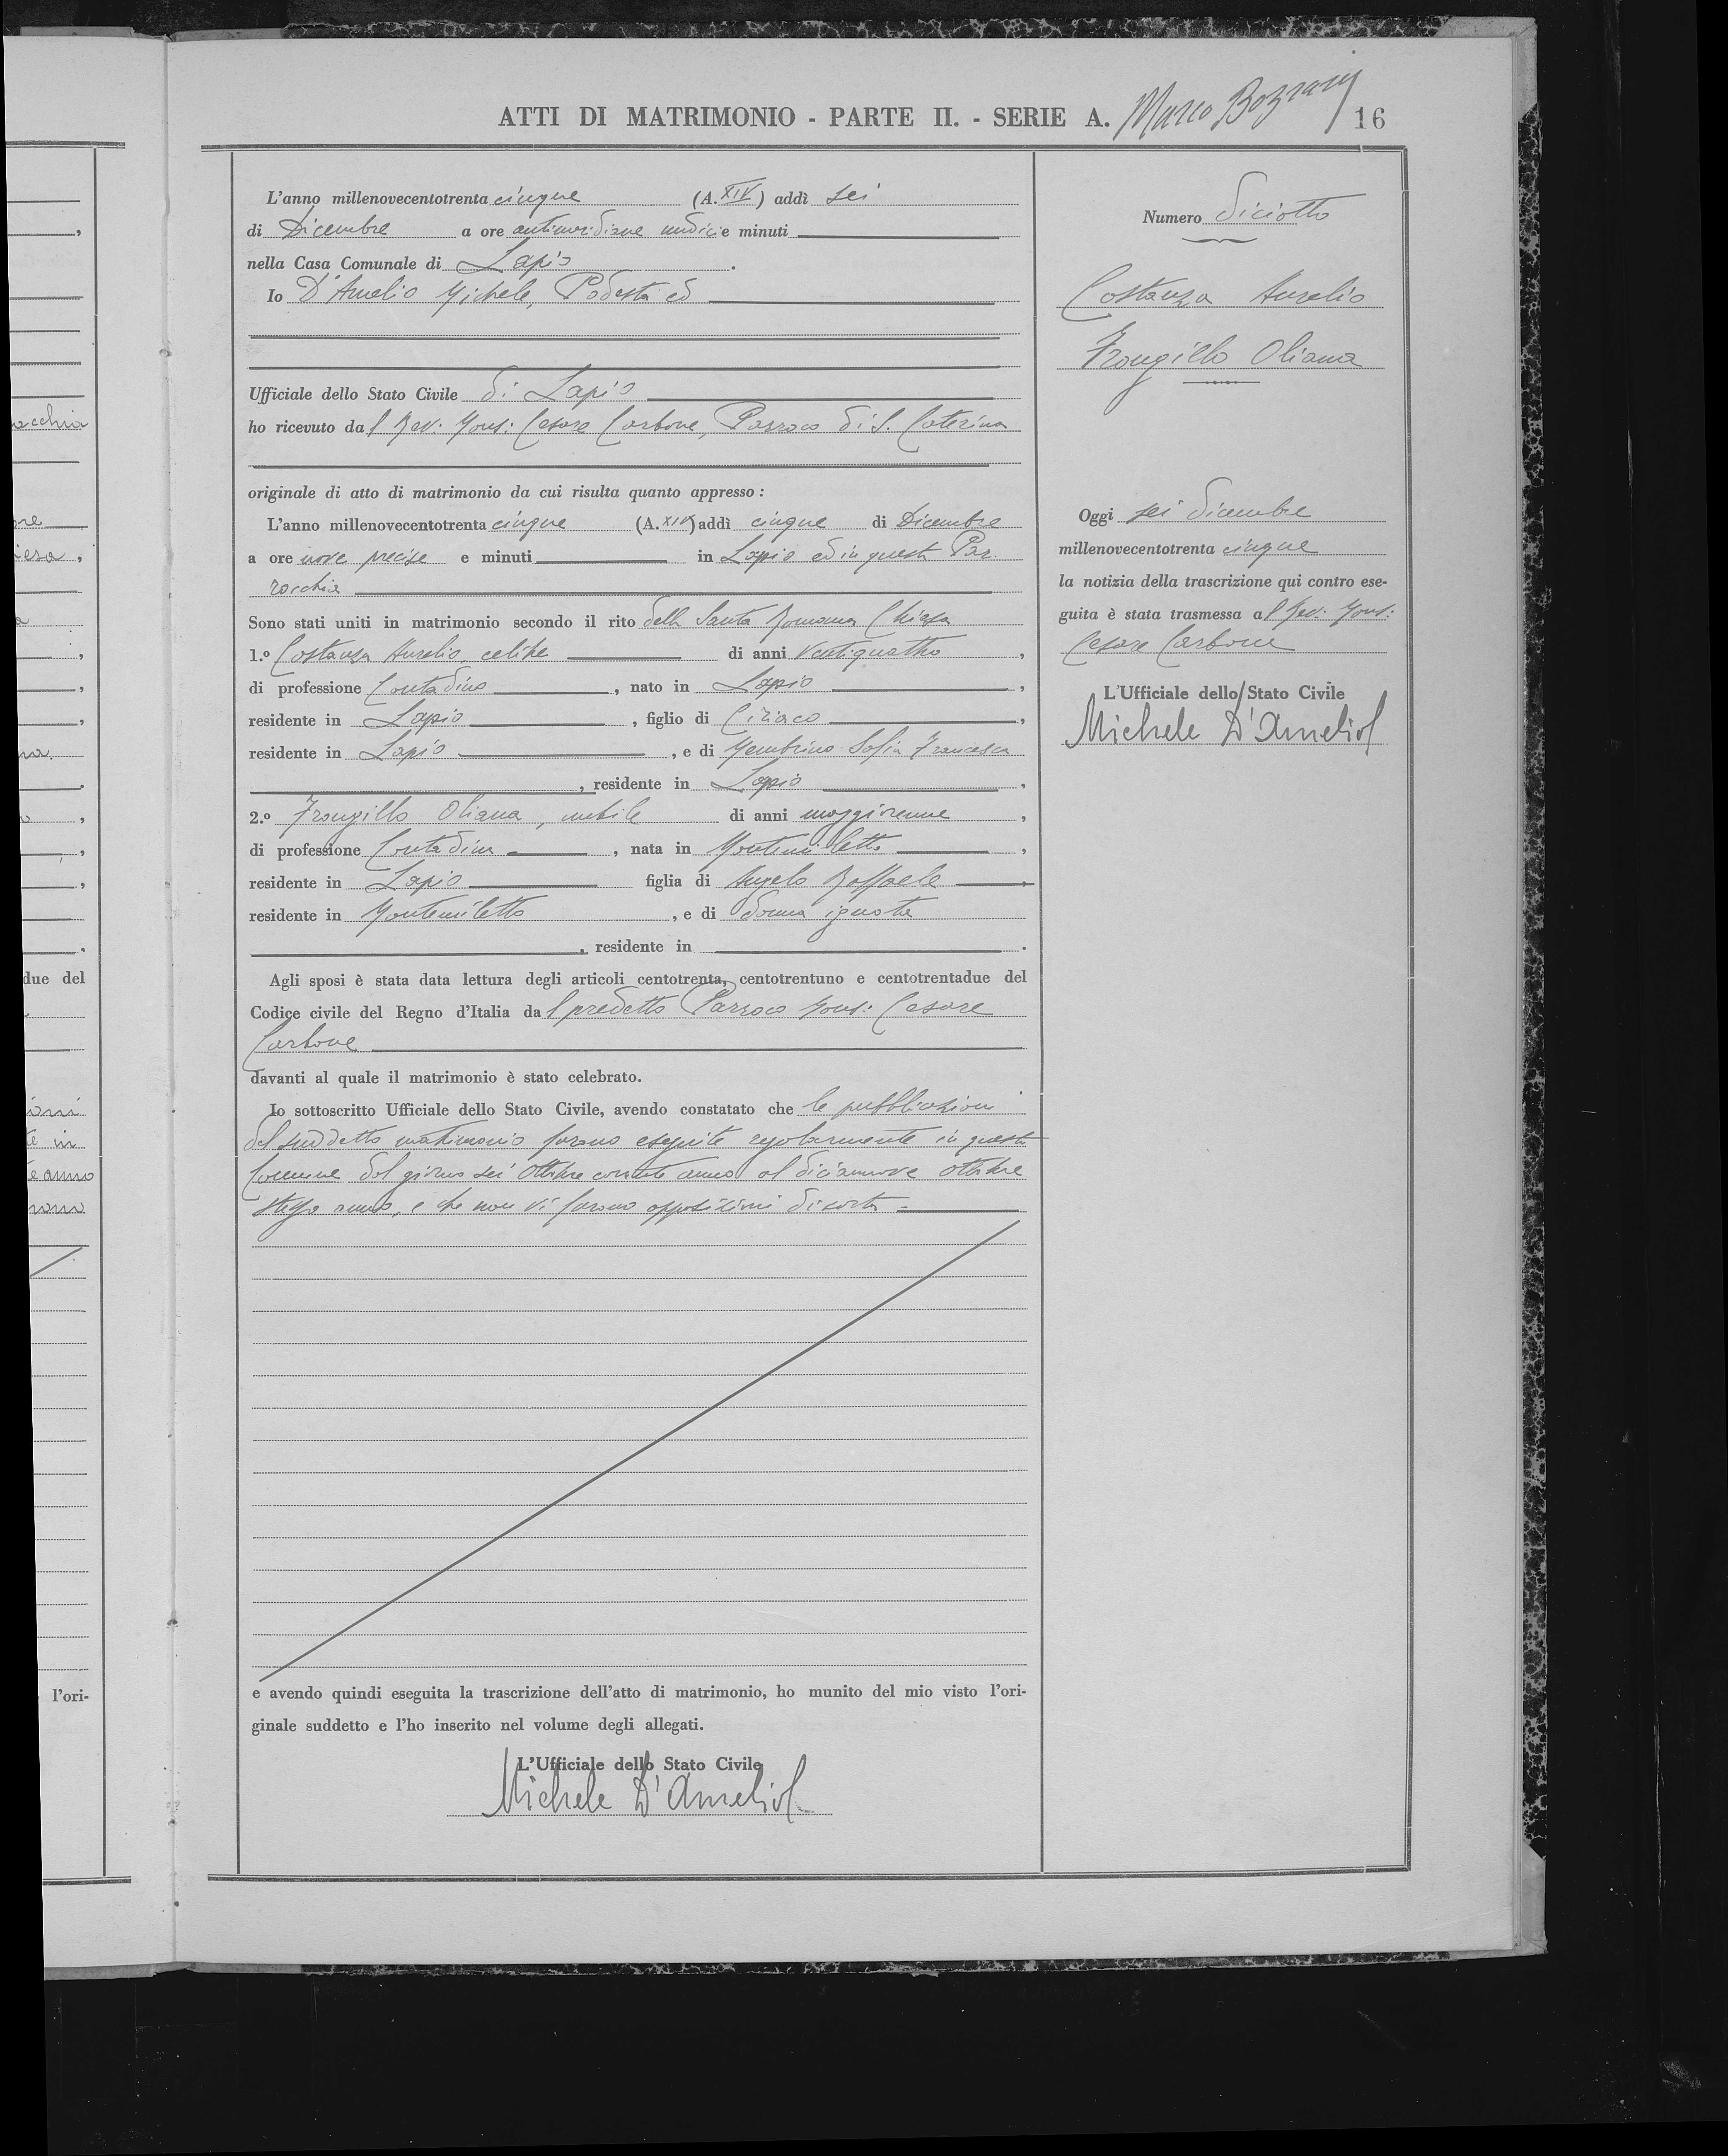 ATTI DI MATRIMONIO - PARTE II. - SERIE A. Marco 16
L'anno millenovecentotrenta cinque (A. XIV) addì sei
di Dicembre a ore antimeridiane undici e minuti
nella Casa Comunale di Lapio.
Io D'Amelio Michele, Podestà ed
Ufficiale dello Stato Civile di Lapio
ho ricevuto dal Rev. Mons: Cesare Carbone, Parroco di S. Caterina
originale di atto di matrimonio da cui risulta quanto appresso:
L'anno millenovecentotrenta cinque (A. XIV) addì cinque di Dicembre
a ore nove precise e minuti in Lapio ed in questa Par
rocchia
Sono stati uniti in matrimonio secondo il rito della Santa Romana Chiesa
1.º Costanza Aurelio, celibe di anni Ventiquattro,
di professione Contadino, nato in Lapio,
residente in Lapio, figlio di Ciriaco,
residente in Lapio, e di Membrino Sofia Francesca
, residente in Lapio,
2.º Frongillo Oliana, nubile di anni maggiorenne,
di professione Contadina, nata in Montemiletto,
residente in Lapio figlia di Angelo Raffaele,
residente in Montemiletto, e di donna ignota
, residente in .
Agli sposi è stata data lettura degli articoli centotrenta, centotrentuno e centotrentadue del
Codice civile del Regno d'Italia dal predetto Parroco Mons: Cesare
Carbone
davanti al quale il matrimonio è stato celebrato.
Io sottoscritto Ufficiale dello Stato Civile, avendo constatato che le pubblicazioni
del suddetto matrimonio furono eseguite regolarmente in questo
Comune dal giorno sei Ottobre corrente anno al diciannove ottobre
stesso anno, e che non vi furono opposizioni di sorta =
e avendo quindi eseguita la trascrizione dell'atto di matrimonio, ho munito del mio visto l'ori-
ginale suddetto e l'ho inserito nel volume degli allegati.
L'Ufficiale dello Stato Civile
Michele D'Amelio
Numero diciotto
Costanza Aurelio
Frongillo Oliana
Oggi sei dicembre
millenovecentotrenta cinque
la notizia della trascrizione qui contro ese-
guita è stata trasmessa al Rev: Mons:
Cesare Carbone
L'Ufficiale dello Stato Civile
Michele D'Amelio
due del
l'ori-